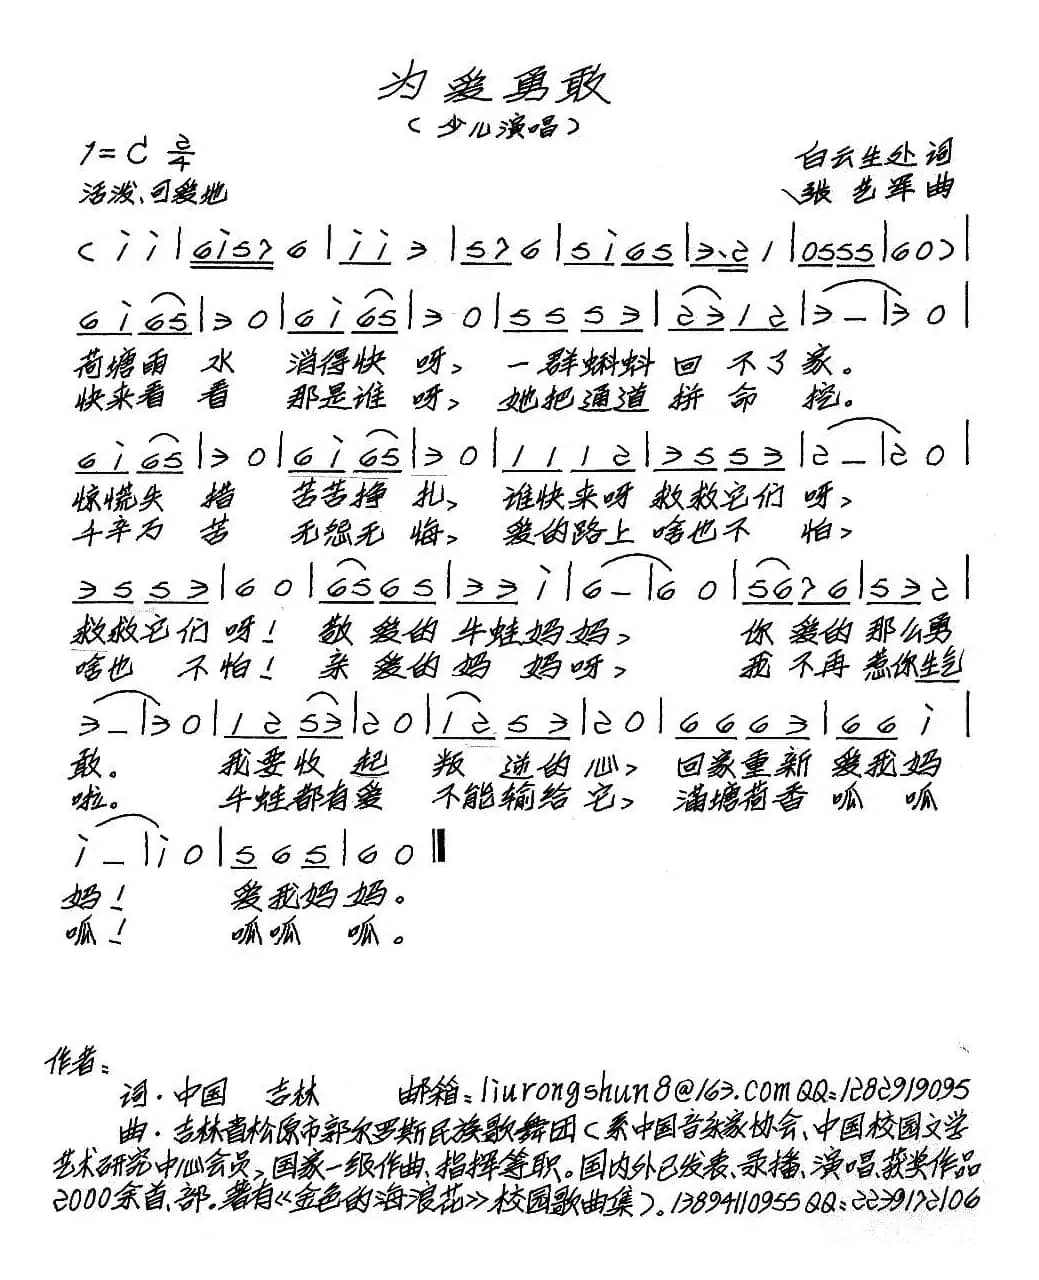 为爱勇敢
（少儿演唱）
1=C 2/4
白云生处 词
活泼、可爱地
张艺军 曲
( i i | 6 i 5 7 6 | i i 3 | 5 7 6 | 5 i 6 5 | 3. 2 1 | 0 5 5 5 | 6 0 ) |
6 i 6 5 | 3 0 | 6 i 6 5 | 3 0 | 5 5 5 3 | 2 3 1 2 | 3 – | 3 0 |
荷塘雨 水 消得快 呀， 一群蝌蚪 回 不了 家。
快来看 看 那是谁 呀， 她把通道 拼 命 挖。
6 i 6 5 | 3 0 | 6 i 6 5 | 3 0 | 1 1 1 2 | 3 5 5 3 | 2 – | 2 0 |
惊慌失 措 苦苦挣 扎， 谁快来呀 救救它们 呀，
千辛万 苦 无怨无 悔， 爱的路上 啥也不 怕，
3 5 5 3 | 6 0 | 6 5 6 5 | 3 3 i | 6 – | 6 0 | 5 6 7 6 | 5 3 2 |
救救它们 呀！ 敬 爱的 牛蛙妈妈， 你 爱的 那么勇
啥也 不 怕！ 亲 爱的 妈 妈呀， 我 不再 惹你生气
3 – | 3 0 | 1 2 5 3 | 2 0 | 1 2 5 3 | 2 0 | 6 6 6 3 | 6 6 i |
敢。 我要收 起 叛 逆的 心， 回家重新 爱我妈
啦。 牛蛙都有爱 不能输给 它， 满塘荷香 呱 呱
i – | i 0 | 5 6 5 | 6 0 ‖
妈！ 爱我妈 妈。
呱！ 呱呱 呱。
作者：
词．中国 吉林 邮箱：liurongshun8@163.com QQ：1282919095
曲．吉林省松原市郭尔罗斯民族歌舞团（系中国音乐家协会、中国校园文学
艺术研究中心会员，国家一级作曲、指挥等职。国内外已发表、录播、演唱、获奖作品
2000余首、部。著有《金色的海浪花》校园歌曲集）。13894110955 QQ：2239172106